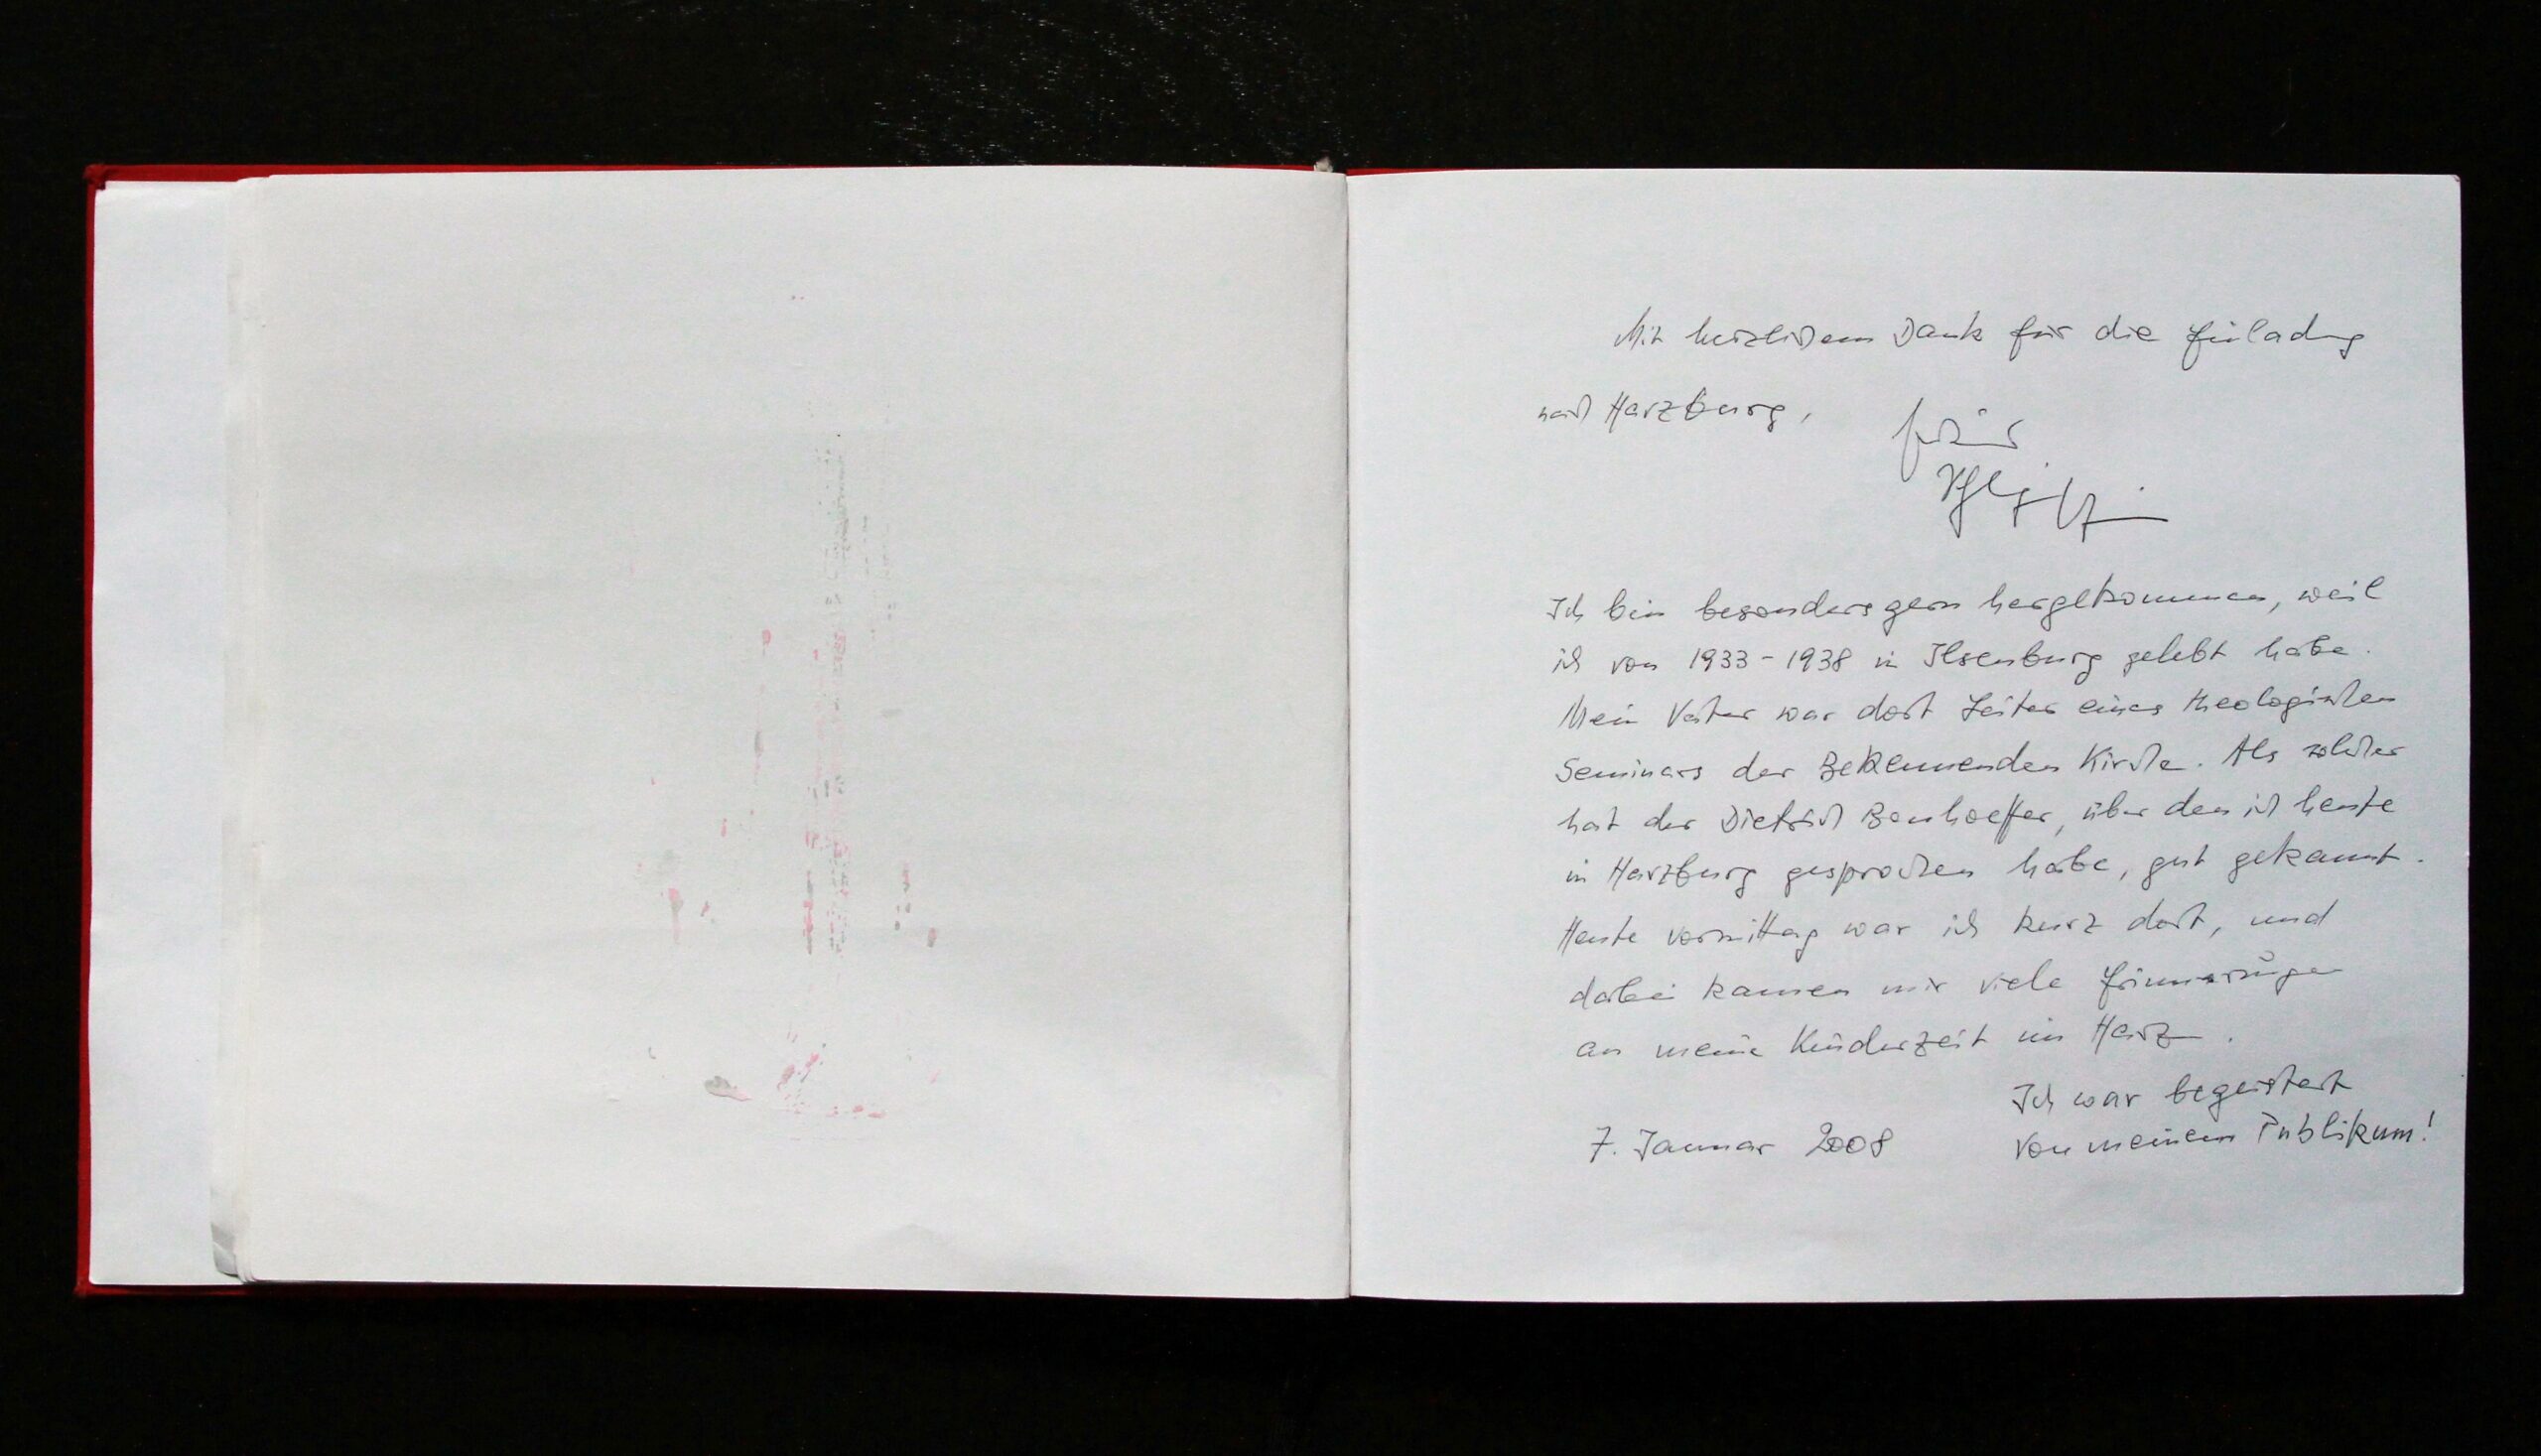 Mit herzlichem Dank für die Einladung
nach Harzburg,
Ich bin besonders gern hergekommen, weil
ich von 1933-1938 in Ilsenburg gelebt habe.
Mein Vater war dort Leiter eines theologischen
Seminars der Bekennenden Kirche. Als solcher
hat der Dietrich Bonhoeffer, über den ich heute
in Harzburg gesprochen habe, gut gekannt.
Heute vormittag war ich kurz dort, und
dabei kamen mir viele Erinnerungen
an meine Kinderzeit im Harz.
Ich war begeistert
von meinem Publikum!
7. Januar 2008